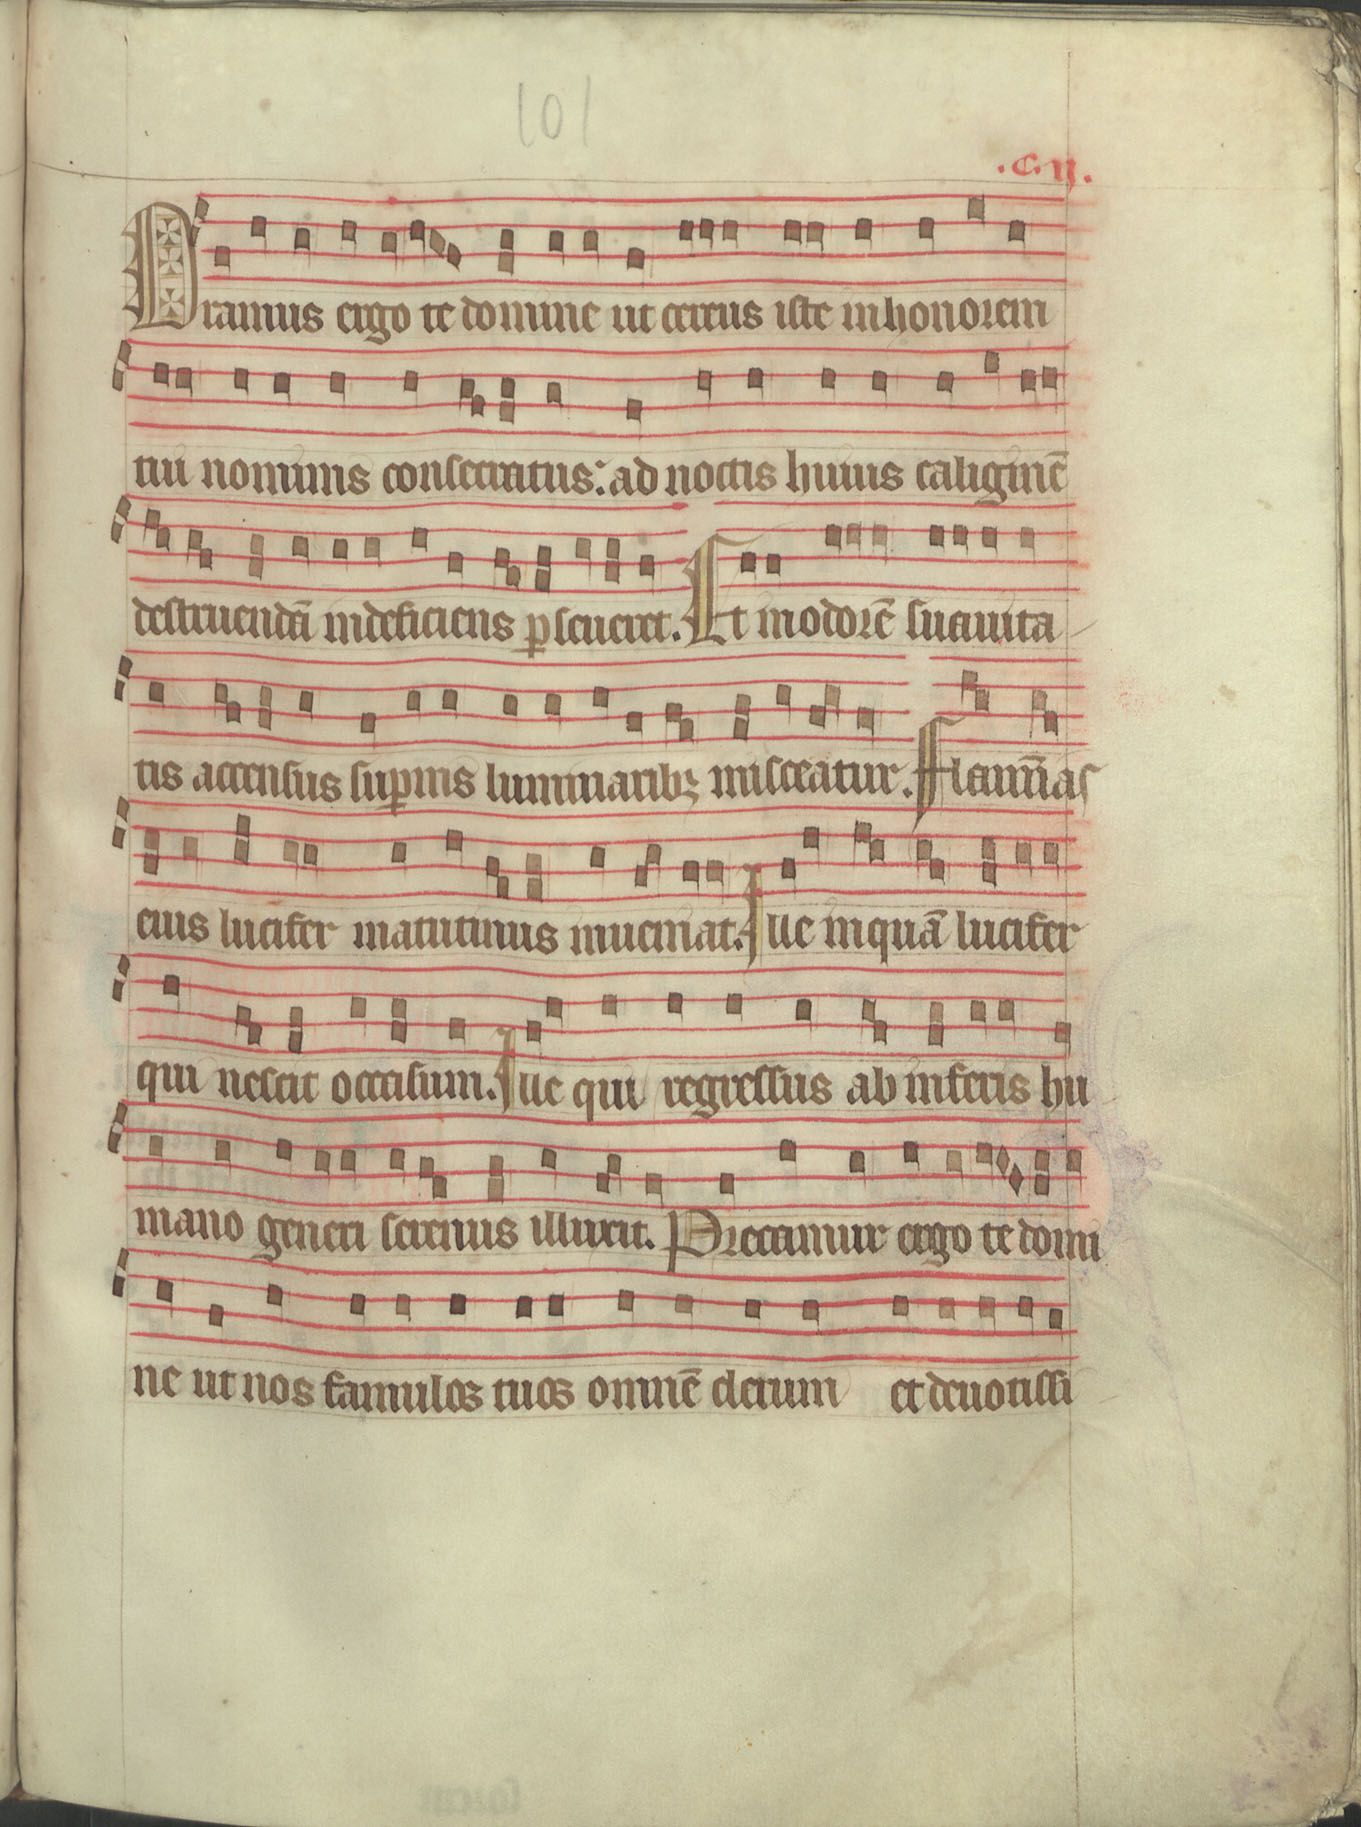 101
.c.ij.
Oramus ergo te domine ut cereus iste in honorem
tui nominis consecratus: ad noctis huius caliginē
destruendā indeficiens ꝑseueret. Et in odorē suauita
tis accensus suꝑnis luminaribꝫ misceatur. Flam̄as
eius lucifer matutinus inueniat. Ille inquā lucifer
qui nescit occasum. Ille qui regressus ab inferis hu
mano generi serenus illuxit. Precamur ergo te domi
ne ut nos famulos tuos omnē clerum et deuotissi